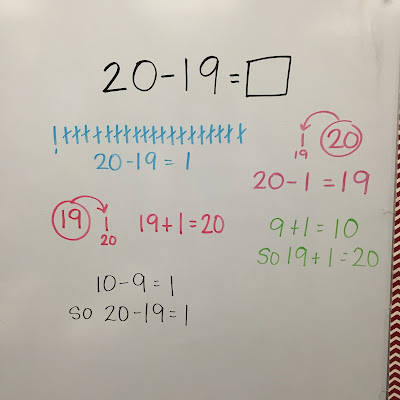 20-19=□
20-19=1
20
19
20-1=19
19
20
19+1=20
9+1=10
so 19+1=20
10-9=1
so 20-19=1